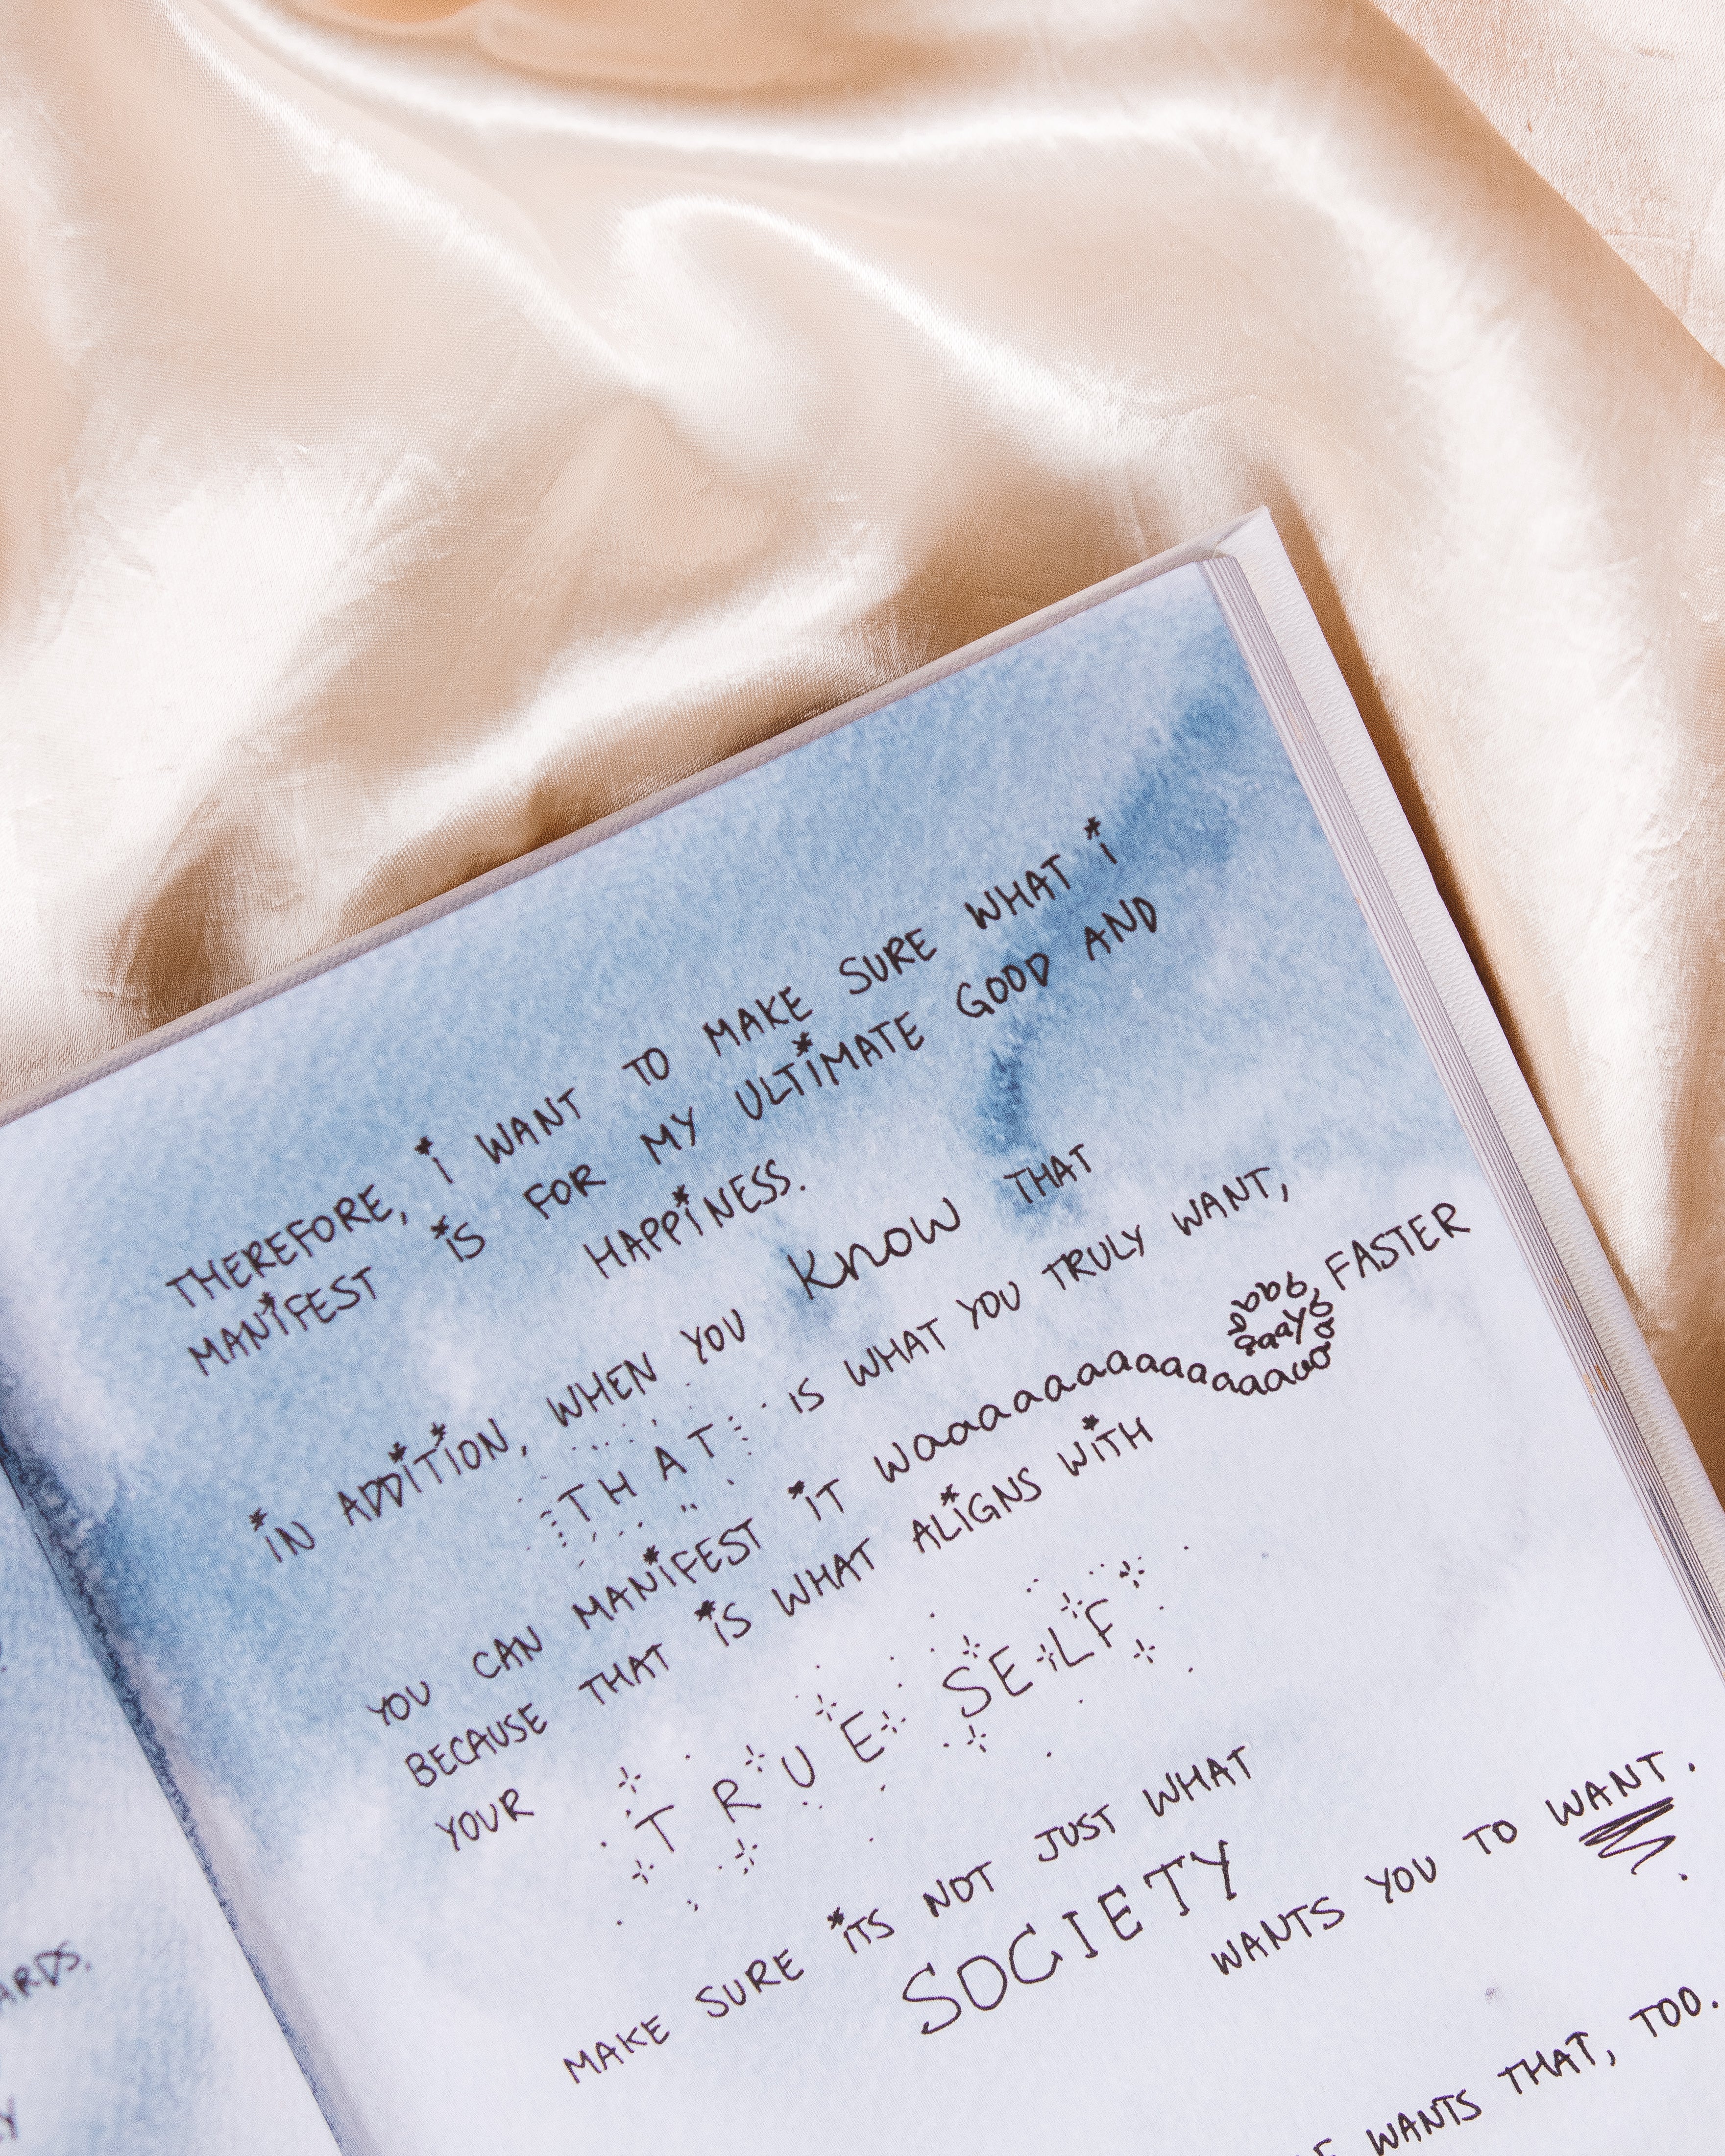 THEREFORE, i WANT TO MAKE SURE WHAT i
MANiFEST iS FOR MY ULTiMATE GOOD AND
HAPPiNESS.
iN ADDiTiON, WHEN YOU Know THAT
THAT iS WHAT YOU TRULY WANT,
YOU CAN MANiFEST iT waaaaaaaaaaaaaaaaaaaaaaaaaaaay FASTER
BECAUSE THAT iS WHAT ALiGNS WiTH
YOUR TRUE SELF
MAKE SURE iTS NOT JUST WHAT
SOCIETY
WANTS YOU TO WANT.
WANTS THAT, TOO.